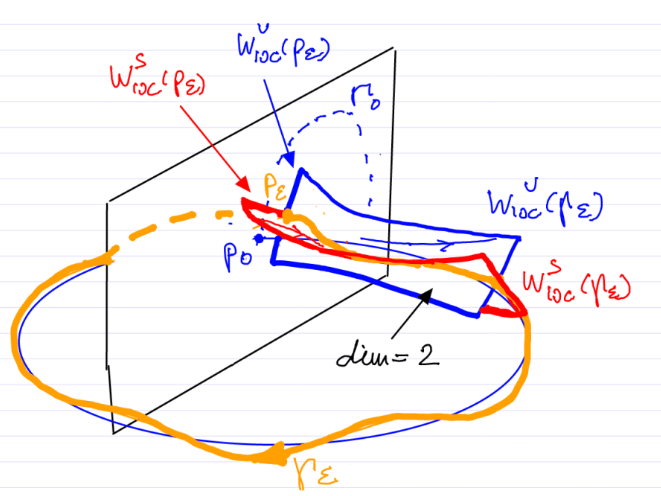 W^U_loc(p_ε)
W^S_loc(p_ε)
Γ_0
p_ε
W^U_loc(Γ_ε)
p_0
W^S_loc(Γ_ε)
dim = 2
Γ_ε